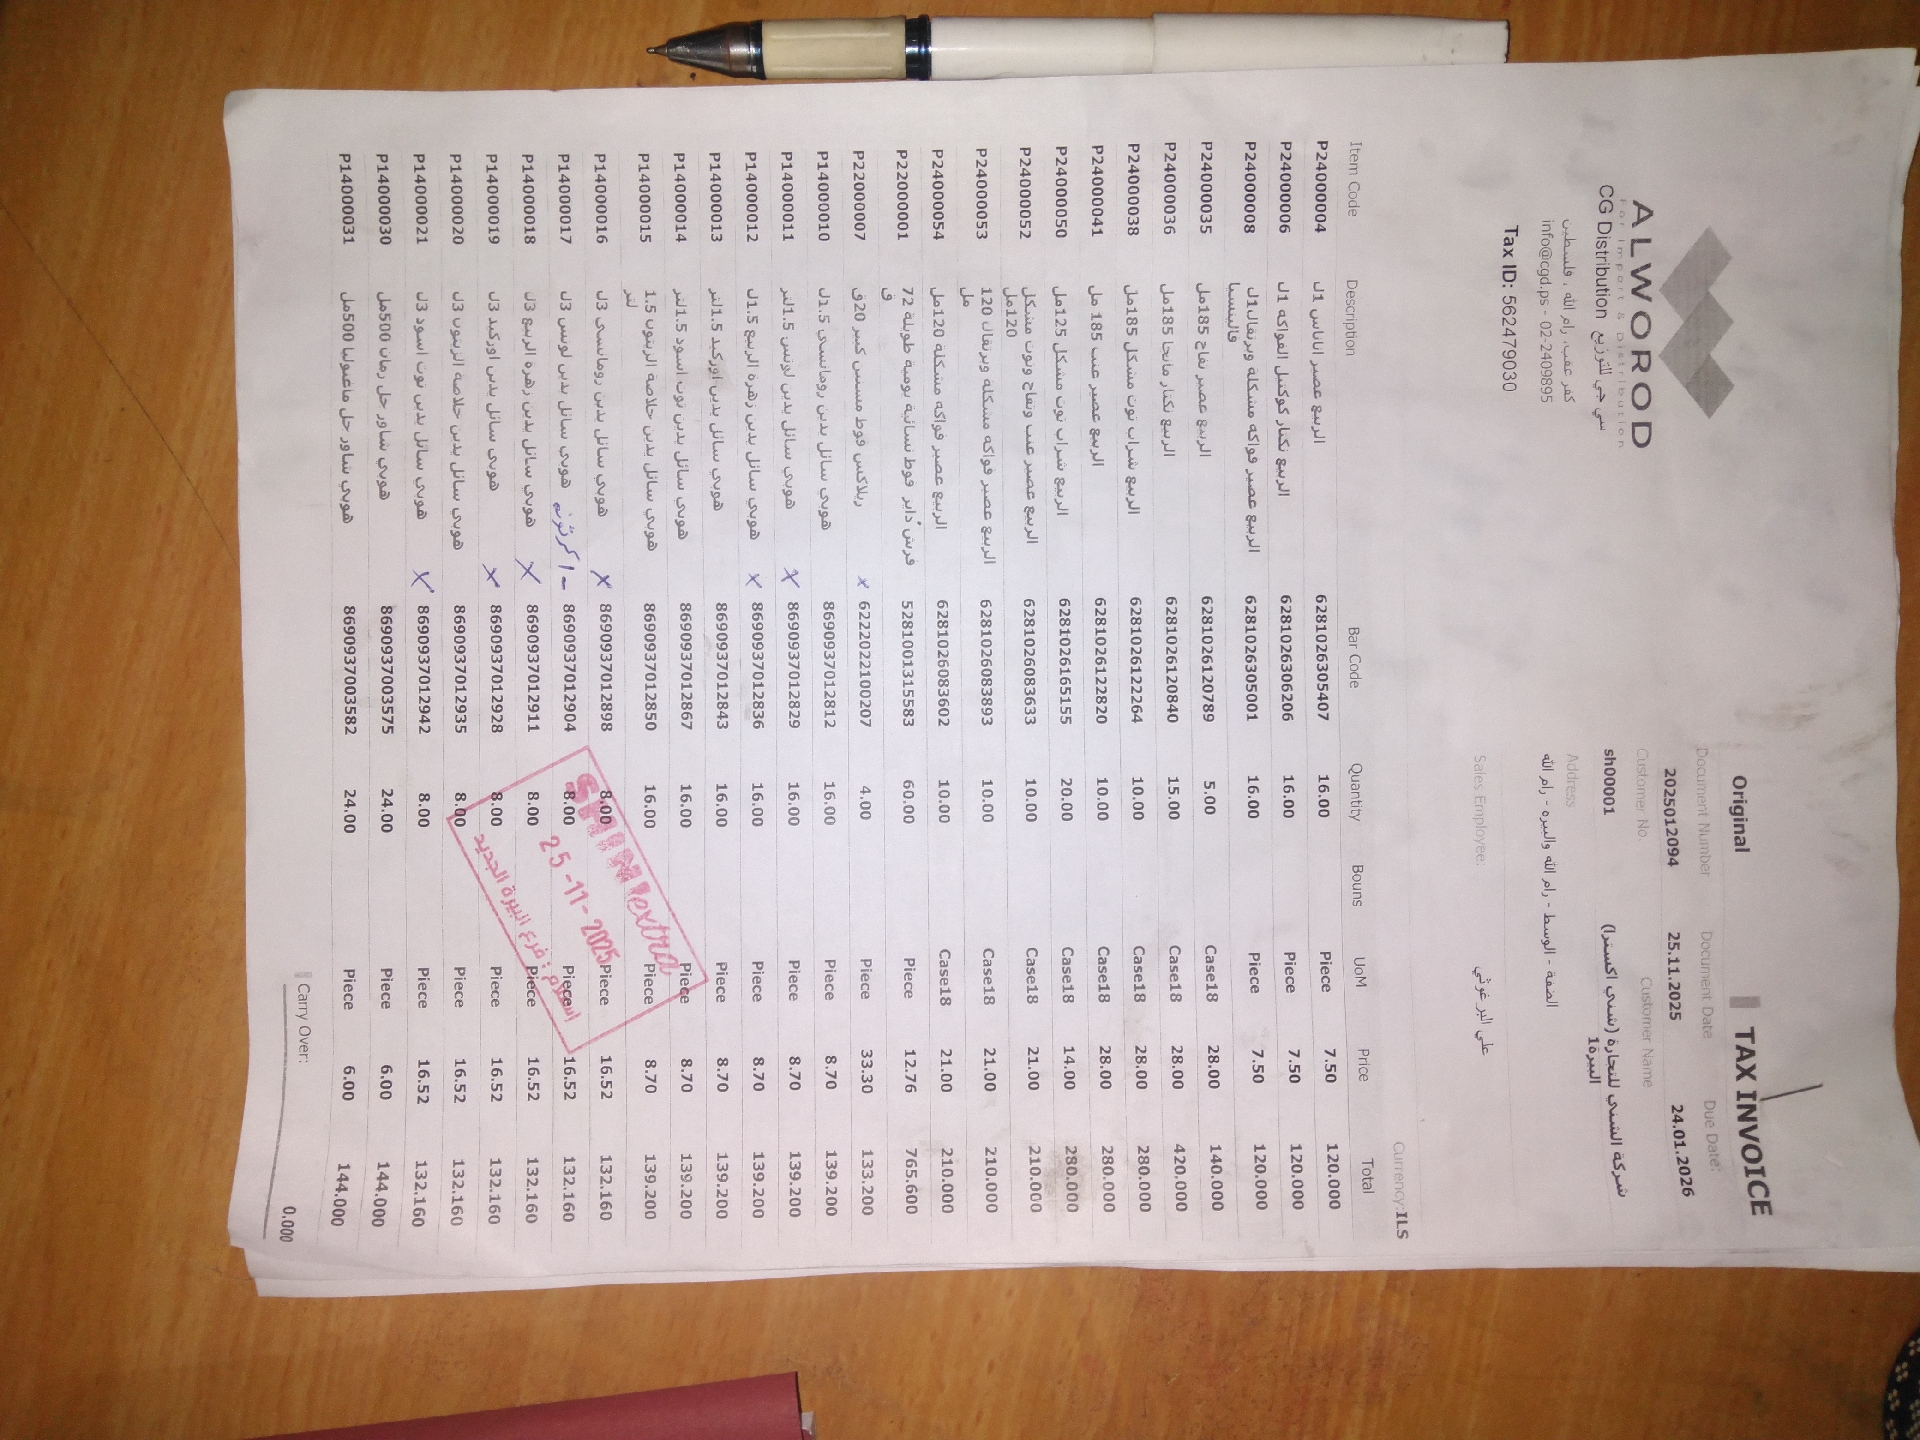 ALWOROD
For Import & Distribution
CG Distribution سي جي للتوزيع
كفر عقب, رام الله , فلسطين
info@cgd.ps - 02-2409895
Tax ID: 562479030
Original
TAX INVOICE
Document Number Document Date Due Date:
2025012094 25.11.2025 24.01.2026
Customer No. Customer Name
sh00001 شركة الشني للتجارة (شني اكسترا) البيرة1
Address
الضفة - الوسط - رام الله والبيره - رام الله
Sales Employee: علي البرغوثي
Currency:ILS
Item Code Description Bar Code Quantity Bouns UoM Price Total
P24000004 الربيع عصير اناناس 1ل 6281026305407 16.00 Piece 7.50 120.000
P24000006 الربيع نكتار كوكتيل الفواكه 1ل 6281026306206 16.00 Piece 7.50 120.000
P24000008 الربيع عصير فواكه مشكلة وبرتقال1ل فالينسيا 6281026305001 16.00 Piece 7.50 120.000
P24000035 الربيع عصير تفاح 185مل 6281026120789 5.00 Case18 28.00 140.000
P24000036 الربيع نكتار مانجا 185مل 6281026120840 15.00 Case18 28.00 420.000
P24000038 الربيع شراب توت مشكل 185مل 6281026122264 10.00 Case18 28.00 280.000
P24000041 الربيع عصير عنب 185 مل 6281026122820 10.00 Case18 28.00 280.000
P24000050 الربيع شراب توت مشكل 125مل 6281026165155 20.00 Case18 14.00 280.000
P24000052 الربيع عصير عنب وتفاح وتوت مشكل 120مل 6281026083633 10.00 Case18 21.00 210.000
P24000053 الربيع عصير فواكه مشكله وبرتقال 120 مل 6281026083893 10.00 Case18 21.00 210.000
P24000054 الربيع عصير فواكه مشكلة 120مل 6281026083602 10.00 Case18 21.00 210.000
P22000001 فرش داير فوط نسائية يومية طويلة 72 ق 5281001315583 60.00 Piece 12.76 765.600
P22000007 ريلاكس فوط مسس كبير 20ق x 6222022100207 4.00 Piece 33.30 133.200
P14000010 هوبي سائل يدين رومانسي 1.5ل 8690937012812 16.00 Piece 8.70 139.200
P14000011 هوبي سائل يدين لوتس 1.5لتر x 8690937012829 16.00 Piece 8.70 139.200
P14000012 هوبي سائل يدين زهرة الربيع 1.5ل x 8690937012836 16.00 Piece 8.70 139.200
P14000013 هوبي سائل يدين اوركيد 1.5لتر 8690937012843 16.00 Piece 8.70 139.200
P14000014 هوبي سائل يدين توت اسود 1.5لتر 8690937012867 16.00 Piece 8.70 139.200
P14000015 هوبي سائل يدين خلاصة الزيتون 1.5 لتر 8690937012850 16.00 Piece 8.70 139.200
P14000016 هوبي سائل يدين رومانسي 3ل x 8690937012898 8.00 Piece 16.52 132.160
P14000017 هوبي سائل يدين لوتس 3ل - ١ كرتونه 8690937012904 8.00 Piece 16.52 132.160
P14000018 هوبي سائل يدين زهرة الربيع 3ل x 8690937012911 8.00 Piece 16.52 132.160
P14000019 هوبي سائل يدين اوركيد 3ل x 8690937012928 8.00 Piece 16.52 132.160
P14000020 هوبي سائل يدين خلاصة الزيتون 3ل 8690937012935 8.00 Piece 16.52 132.160
P14000021 هوبي سائل يدين توت اسود 3ل x 8690937012942 8.00 Piece 16.52 132.160
P14000030 هوبي شاور جل رمان 500مل 8690937003575 24.00 Piece 6.00 144.000
P14000031 هوبي شاور جل ماغنوليا 500مل 8690937003582 24.00 Piece 6.00 144.000
SHINI extra
25-11-2025
استلام : فرع البيرة الجديد
Carry Over: 0.000